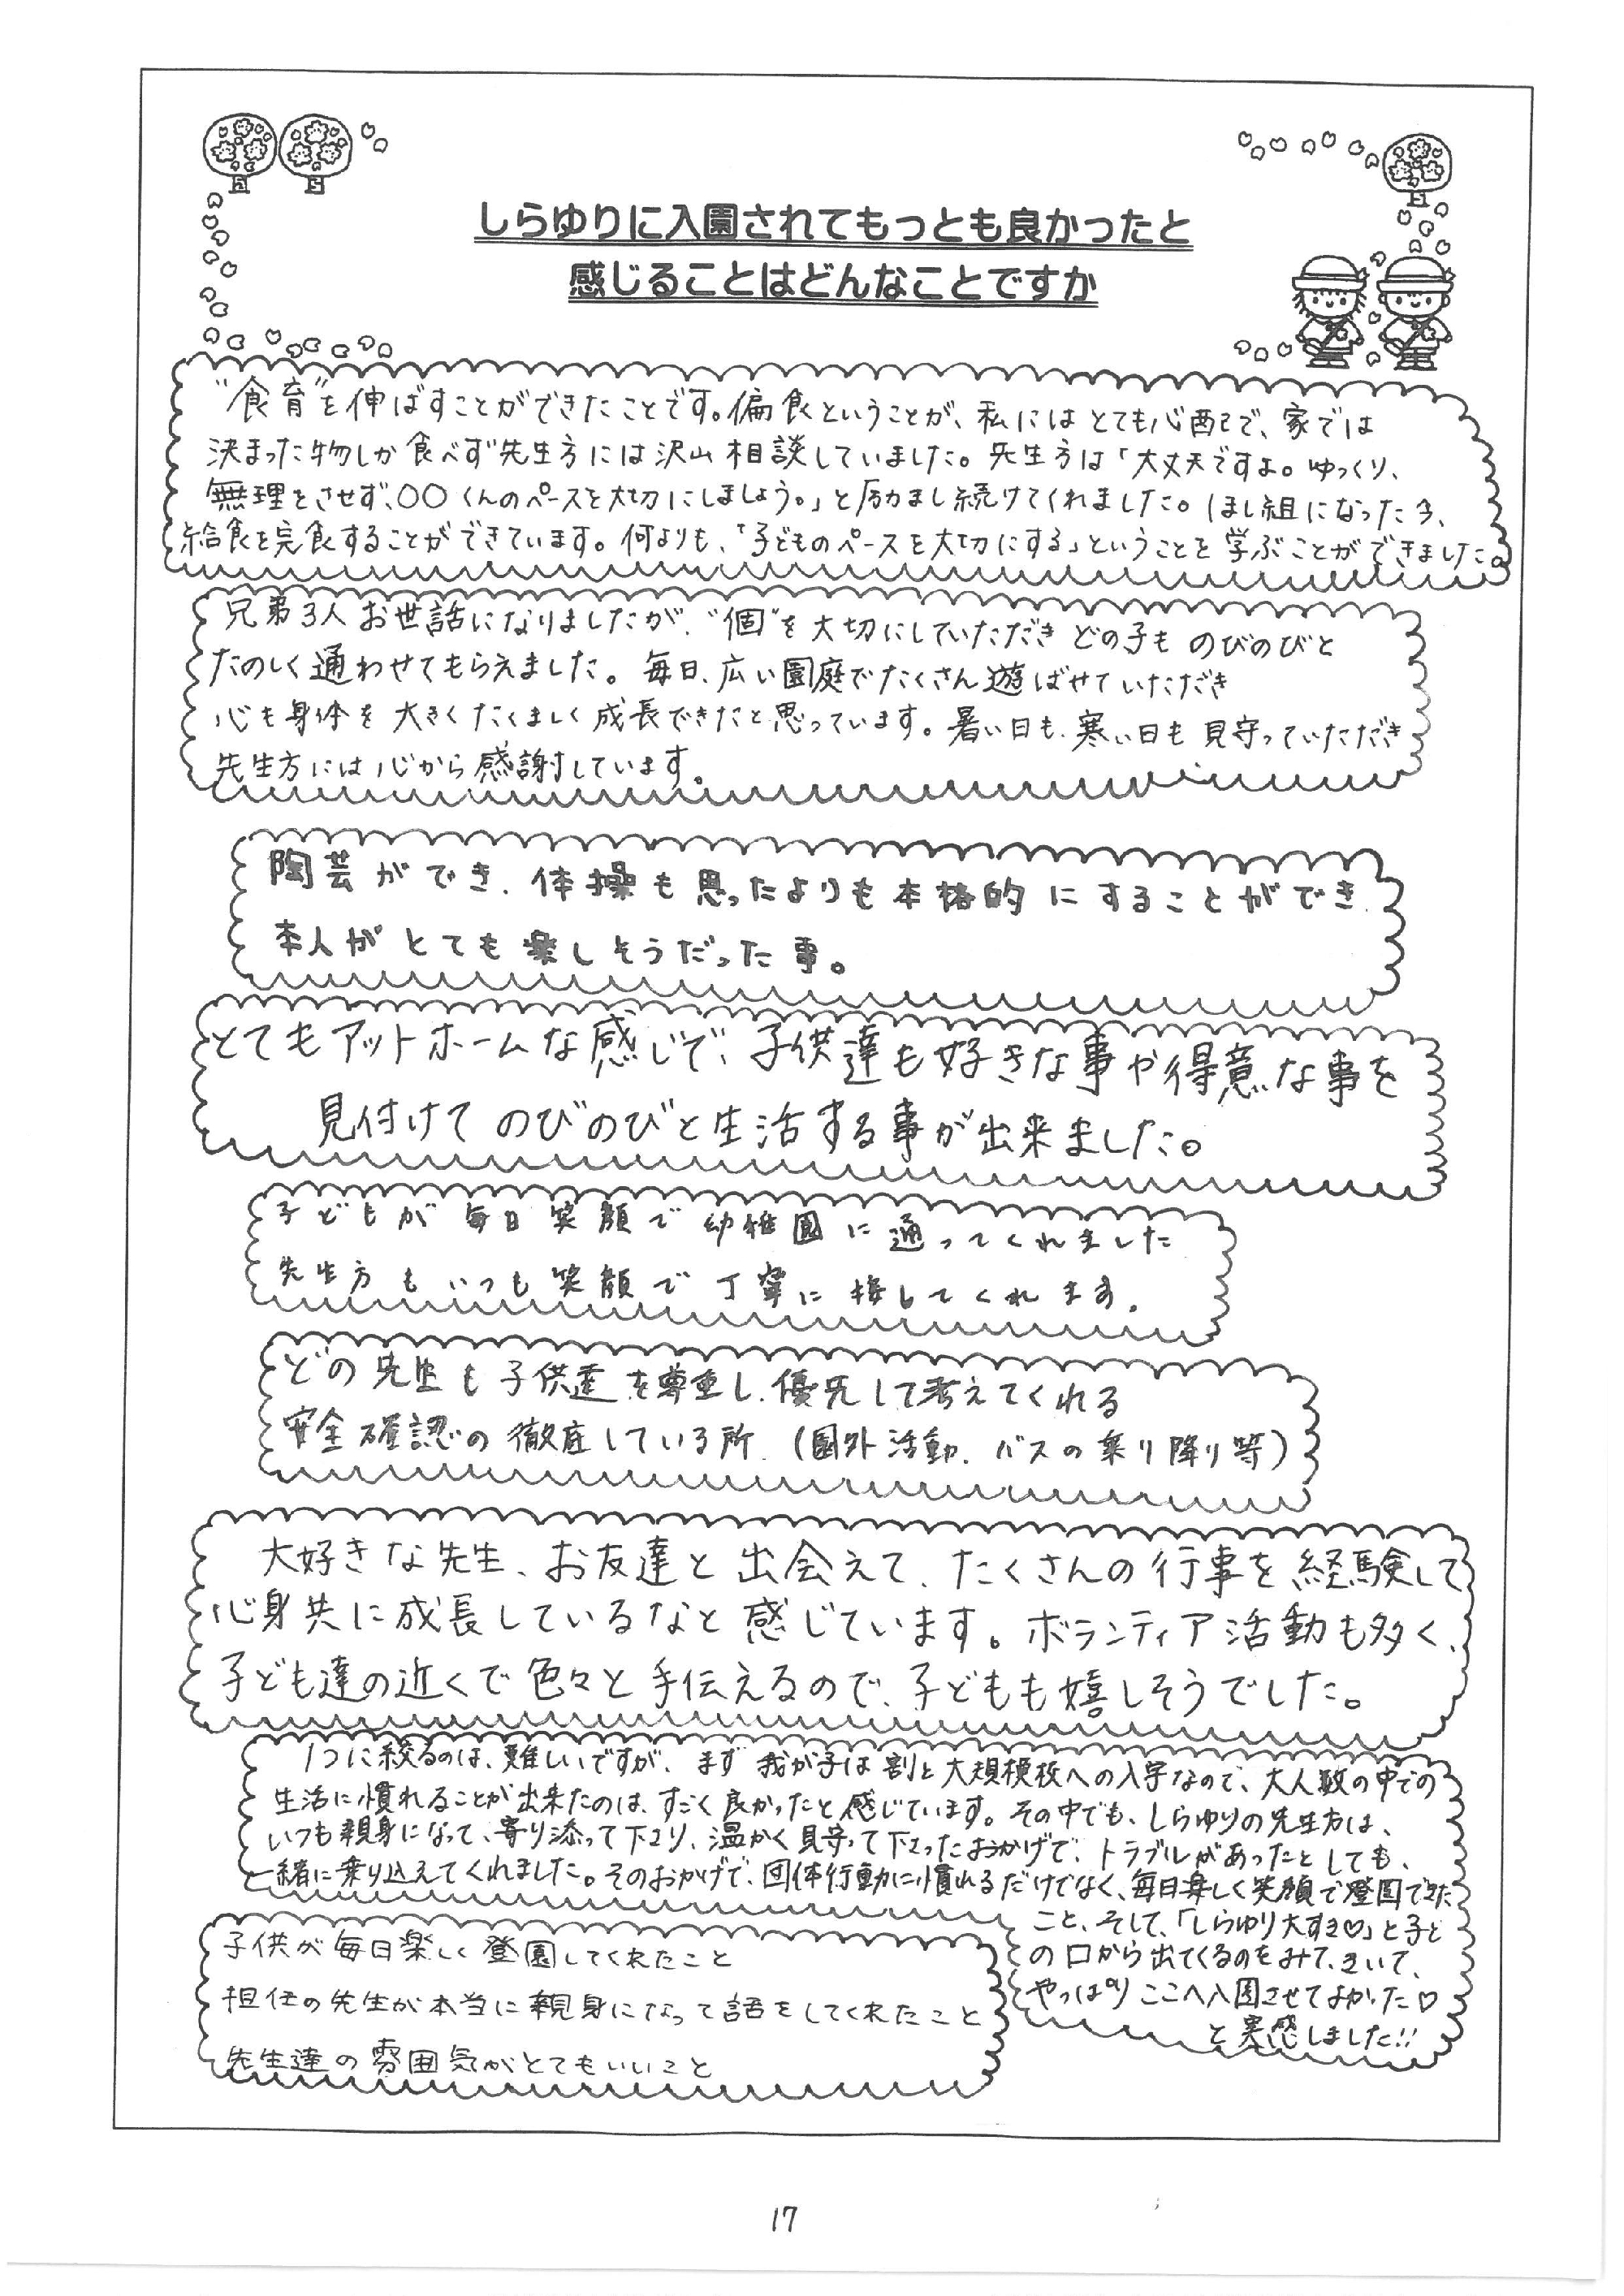 しらゆりに入園されてもっとも良かったと
感じることはどんなことですか
"食育"を伸ばすことができたことです。偏食ということが、私にはとても心配で、家では
決まった物しか食べず先生方には沢山相談していました。先生方は「大丈夫ですよ。ゆっくり、
無理をさせず、〇〇くんのペースを大切にしましょう。」と励まし続けてくれました。ほし組になった今、
給食を完食することができています。何よりも、「子どものペースを大切にする」ということを学ぶことができました。
兄弟3人お世話になりましたが、"個"を大切にしていただきどの子ものびのびと
たのしく通わせてもらえました。毎日、広い園庭でたくさん遊ばせていただき
心も身体を大きくたくましく成長できたと思っています。暑い日も、寒い日も見守っていただき
先生方には心から感謝しています。
陶芸ができ、体操も思ったよりも本格的にすることができ
本人がとても楽しそうだった事。
とてもアットホームな感じで、子供達も好きな事や得意な事を
見付けてのびのびと生活する事が出来ました。
子どもが毎日笑顔で幼稚園に通ってくれました
先生方もいつも笑顔で丁寧に接してくれます。
どの先生も子供達を尊重し、優先して考えてくれる
安全確認の徹底している所、(園外活動、バスの乗り降り等)
大好きな先生、お友達と出会えて、たくさんの行事を経験して
心身共に成長しているなと感じています。ボランティア活動も多く、
子ども達の近くで色々と手伝えるので、子どもも嬉しそうでした。
1つに絞るのは、難しいですが、まず我が子は割と大規模校への入学なので、大人数の中での
生活に慣れることが出来たのは、すごく良かったと感じています。その中でも、しらゆりの先生方は、
いつも親身になって、寄り添って下さり、温かく見守って下さったおかげで、トラブルがあったとしても、
一緒に乗り込えてくれました。そのおかげで、団体行動に慣れるだけでなく、毎日楽しく笑顔で登園できた
こと、そして、「しらゆり大すき♡」と子ど
の口から出てくるのをみて、きいて、
やっぱりここへ入園させてよかった♡
と実感しました!!
子供が毎日楽しく登園してくれたこと
担任の先生が本当に親身になって話をしてくれたこと
先生達の雰囲気がとてもいいこと
17